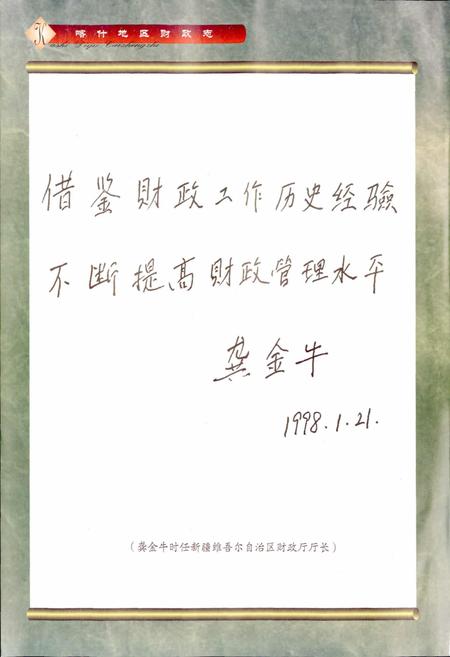 喀什地区财政志
Kashi Diqu Caizhengzhi
借鉴財政工作历史经驗
不断提高財政管理水平
龚金牛
1998.1.21.
（龚金牛时任新疆维吾尔自治区财政厅厅长）